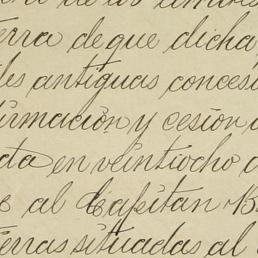 erra de que dicha
les antiguas concesi
firmación y cesion
da en veintiocho
al Capitan
erras situadas al